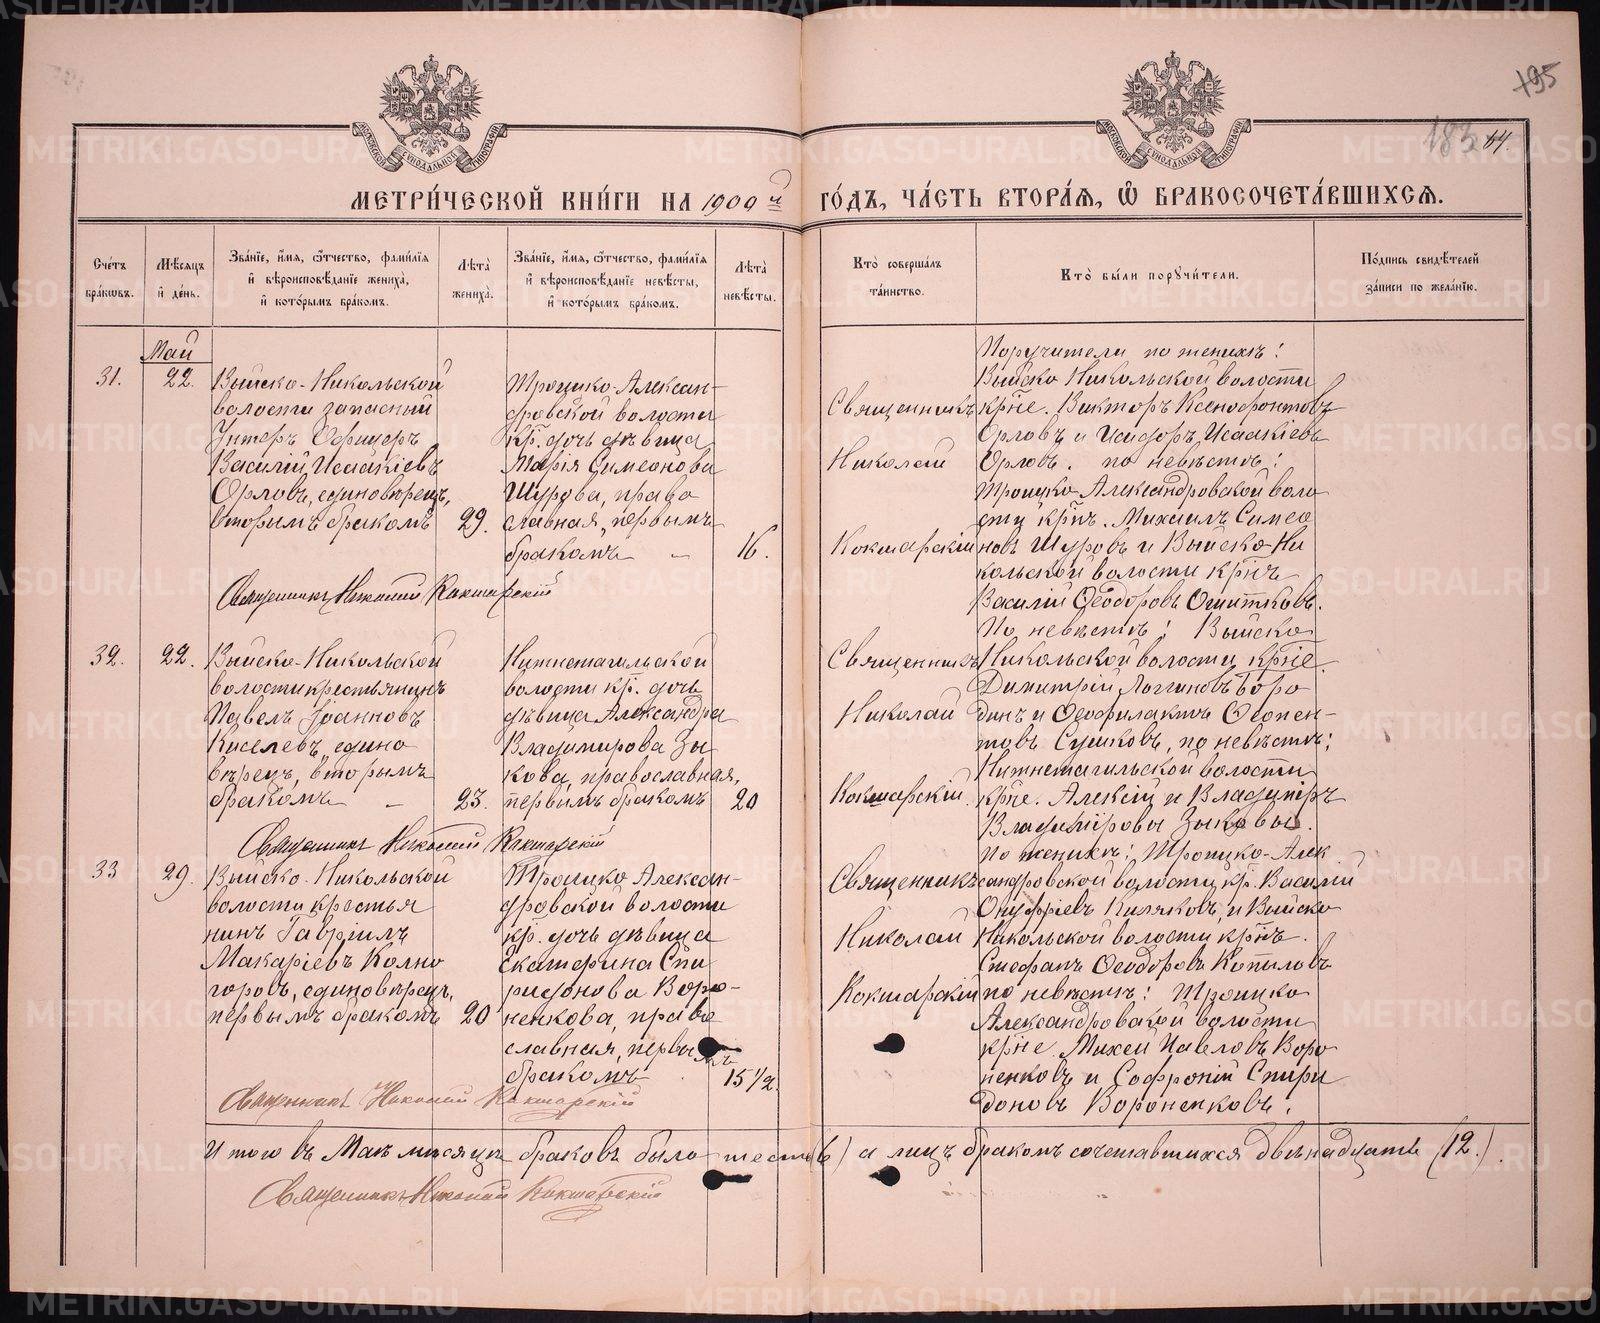 195
183 64
МОСКОВСКОЙ СѴНОДАЛЬНОЙ ТИПОГРАФІИ
МОСКОВСКОЙ СѴНОДАЛЬНОЙ ТИПОГРАФІИ
МЕТРИ́ЧЕСКОЙ КНИ́ГИ НА 1900й ГО́ДЪ, ЧА́СТЬ ВТОРА́Я, Ѿ БРАКОСОЧЕТА́ВШИХСЯ.
Сче́тъ бра́ковъ.
Мѣ́сяцъ и́ де́нь.
Зва́нїе, и́мя, ѻ́тчество, фами́лїя и́ вѣроисповѣ́данїе жениха̀, и́ кото́рымъ бра́комъ.
Лѣта̀ жениха̀.
Зва́нїе, и́мя, ѻ́тчество, фами́лїя и́ вѣроисповѣ́данїе невѣ́сты, и́ кото́рымъ бра́комъ.
Лѣта̀ невѣ́сты.
Кто̀ соверша́лъ та́инство.
Кто̀ бы́ли порꙋчи́тели.
По́дпись свидѣ́телей за́писи по жела́нїю.
Май
31.
22.
Выйско-Никольской
волости запасный
Унтеръ Офицеръ
Василій Исаакіевъ
Орловъ, единовѣрецъ,
вторымъ бракомъ
29.
Троицко-Алексан-
дровской волости
кр. дочь дѣвица
Марія Симеонова
Щурова, право
славная, первымъ
бракомъ
16.
Священникъ
Николай
Кокшарскій
Поручители по женихѣ:
Выйско Никольской волости
крнѣ. Викторъ Ксенофонтовъ
Орловъ и Исидоръ Исаакіевъ
Орловъ. по невѣстѣ:
Троицко Александровской воло
сти крнъ. Михаилъ Симео
новъ Щуровъ и Выйско-Ни
кольской волости крнъ
Василій Ѳеодоровъ Ошитковъ.
Священникъ Николай Кокшарскій
32.
22.
Выйско-Никольской
волости крестьянинъ
Павелъ Іоанновъ
Киселевъ, едино
вѣрецъ, вторымъ
бракомъ
23.
Нижнетагильской
волости кр. дочь
дѣвица Александра
Владимирова Зы
кова, православная,
первымъ бракомъ
20
Священникъ
Николай
Кокшарскій
По невѣстѣ: Выйско
Никольской волости крнѣ.
Димитрій Логгиновъ Боро
динъ и Ѳеофилактъ Ѳеопен-
товъ Сушковъ, по невѣстѣ:
Нижнетагильской волости
крнѣ. Алексій и Владимиръ
Владиміровы Зыковы.
Священникъ Николай Кокшарскій
33
29.
Выйско-Никольской
волости крестья
нинъ Гавріилъ
Макаріевъ Колно
горовъ, единовѣрецъ,
первымъ бракомъ
20
Троицко Алексан-
дровской волости
кр. дочь дѣвица
Екатерина Спи
ридонова Воро-
ненкова, право
славная, первымъ
бракомъ
15 1/2.
Священникъ
Николай
Кокшарскій
По женихѣ: Троицко-Алек
сандровской волости кр. Василій
Онуфріевъ Киляковъ, и Выйско
Никольской волости крнъ.
Стефанъ Ѳеодоровъ Копыловъ
по невѣстѣ: Троицко
Александровской волости
крнѣ Михей Павловъ Воро
ненковъ и Софроній Спири
доновъ Вороненковъ.
Священникъ Николай Кокшарскій
Итого въ Маѣ мѣсяцѣ браковъ было шесть (6) а лицъ бракомъ сочетавшихся двѣнадцать (12.).
Священникъ Николай Кокшарскій